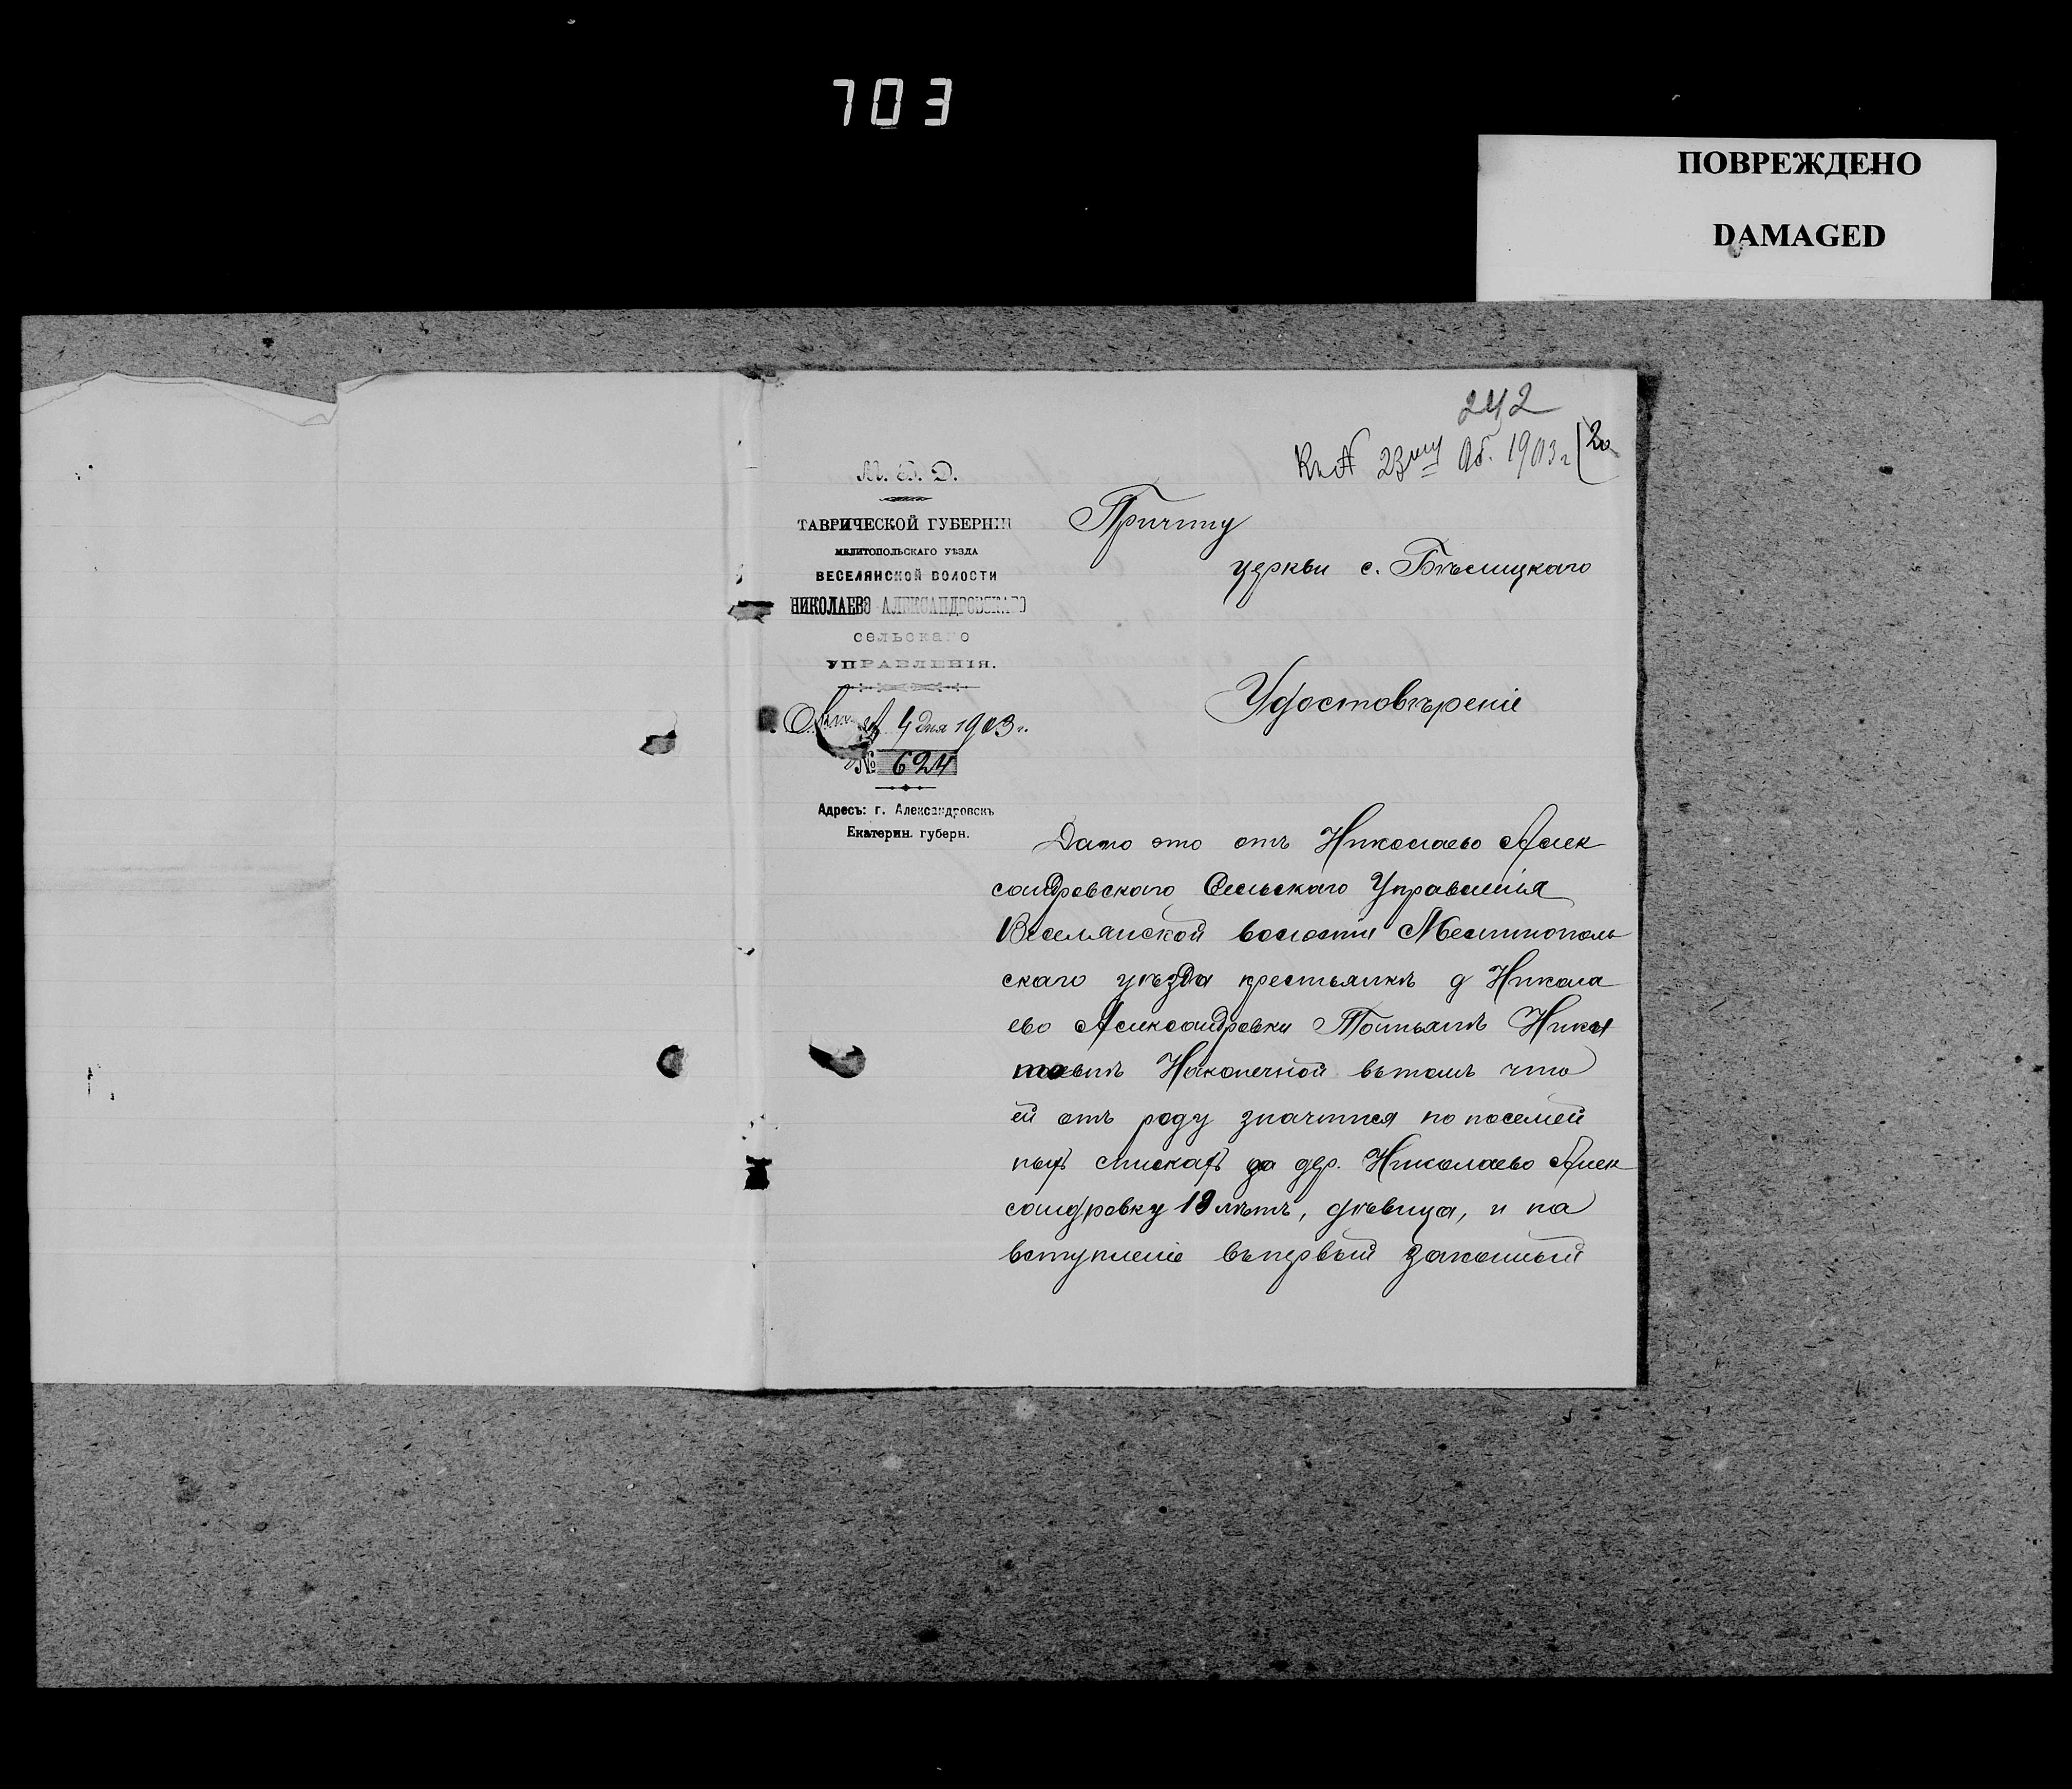 703
ПОВРЕЖДЕНО
DAMAGED
242
Къ № 23му Об. 1903 г
М. В. Д.
ТАВРИЧЕСКОЙ ГУБЕРНІИ
МЕЛИТОПОЛЬСКАГО УѢЗДА
ВЕСЕЛЯНСКОЙ ВОЛОСТИ
НИКОЛАЕВО-АЛЕКСАНДРОВСКАГО
СЕЛЬСКАГО
УПРАВЛЕНІЯ.
4 дня 1903 г.
№ 624
Адресъ: г. Александровскъ
Екатерин. губерн.
Причту
церкви с. Бѣлицкаго
Удостовѣреніе
Дано это отъ Николаево Алек
сандровскаго Сельскаго Управленія
Веселянской волости Мелитополь
скаго уѣзда крестьянкѣ д Никола
ево Александровки Татьянѣ Ники
товнѣ Наконечной вътомъ что
ей отъ роду значится по посемей
нымъ спискамъ до дер. Николаево Алек
сандровку 18 лѣтъ, дѣвица, и на
вступленіе въпервый законный